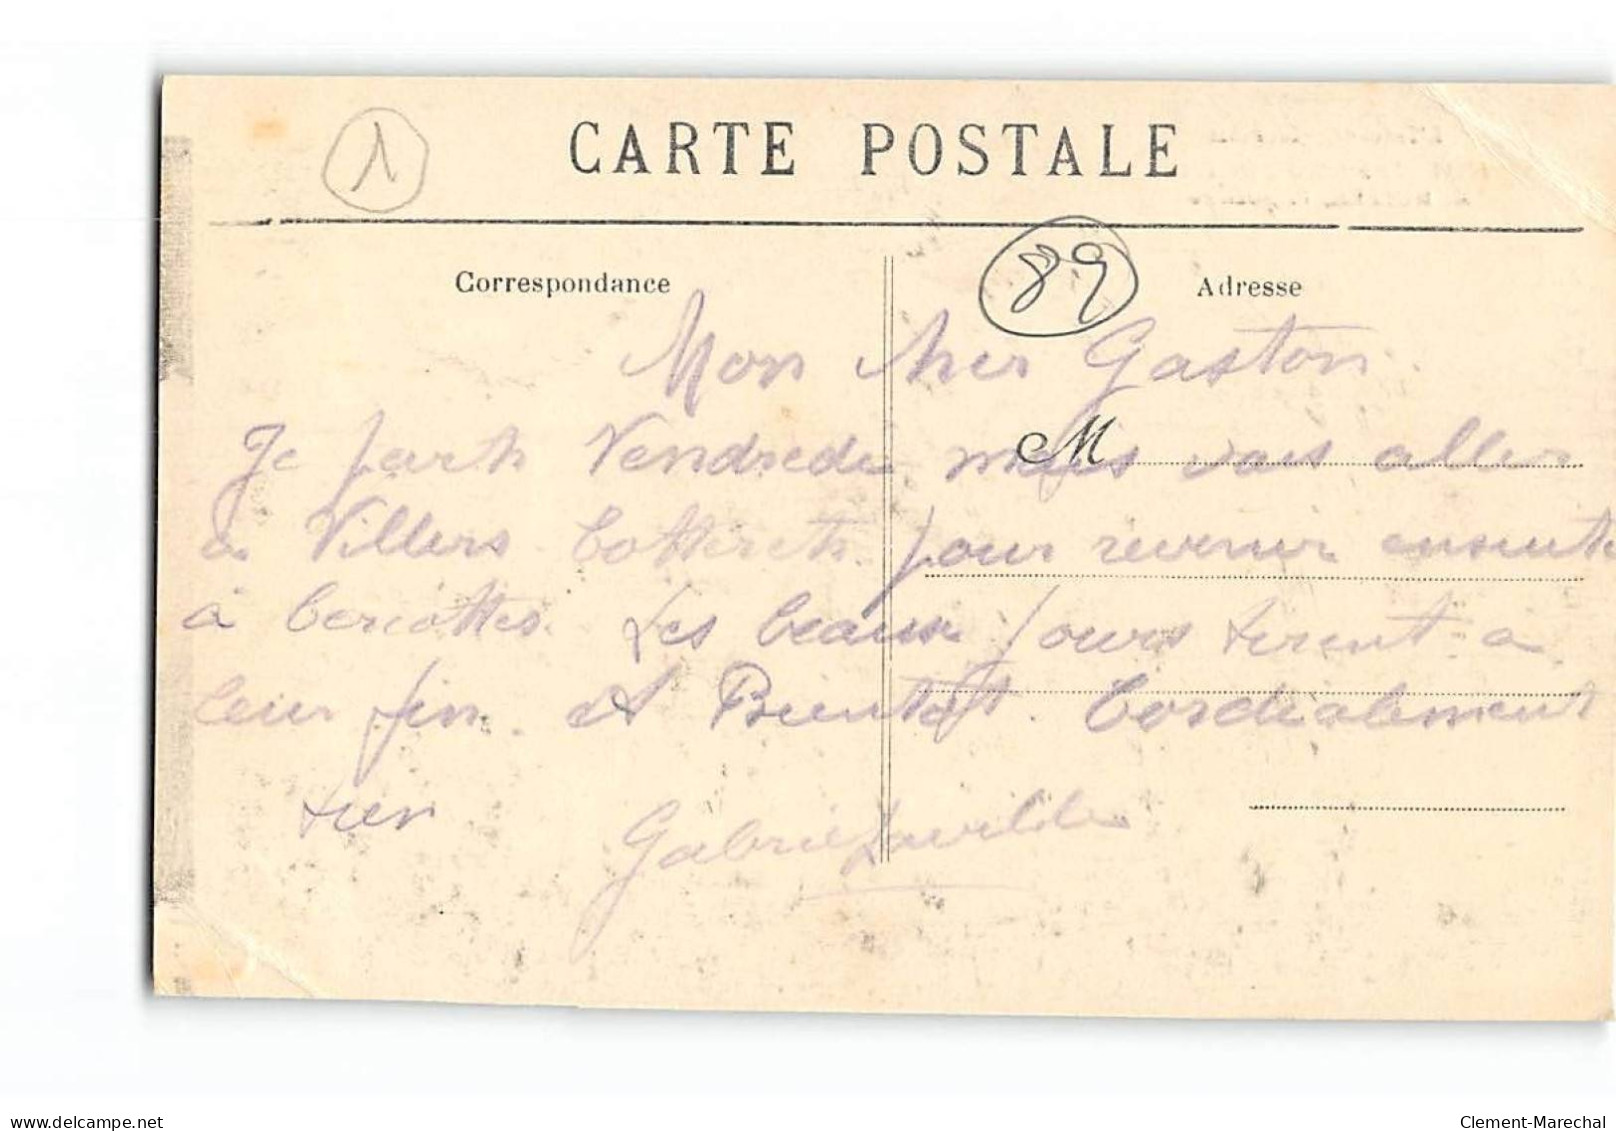 1
CARTE POSTALE
89
Correspondance
Adresse
Mon cher Gaston
M
Je parts Vendredi mais vais aller
a Villers Cotterets pour revenir ensuite
à Cercottes. Les beaux jours tirent a
leur fin et Bientot. Cordialement
tien
Gabriel
delcampe.net
Clement-Marechal